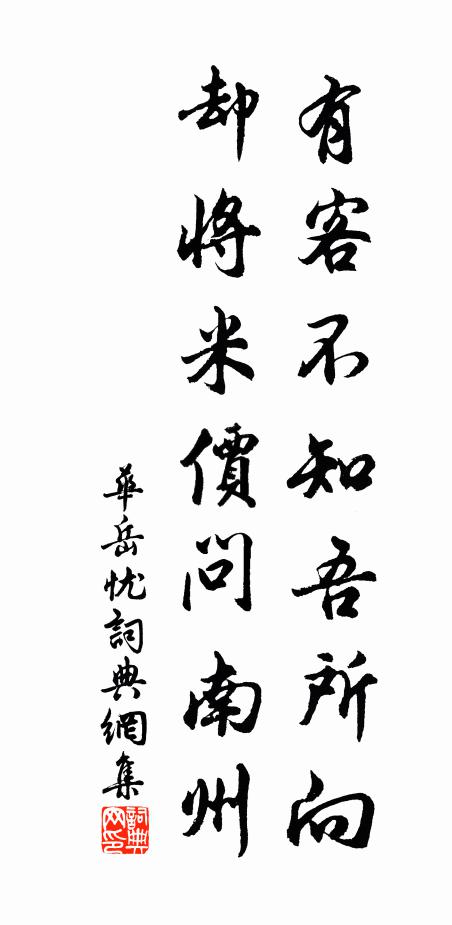 有客不知吾所向
却將米價問南州
華岳忧詞典網集
詞典
网印